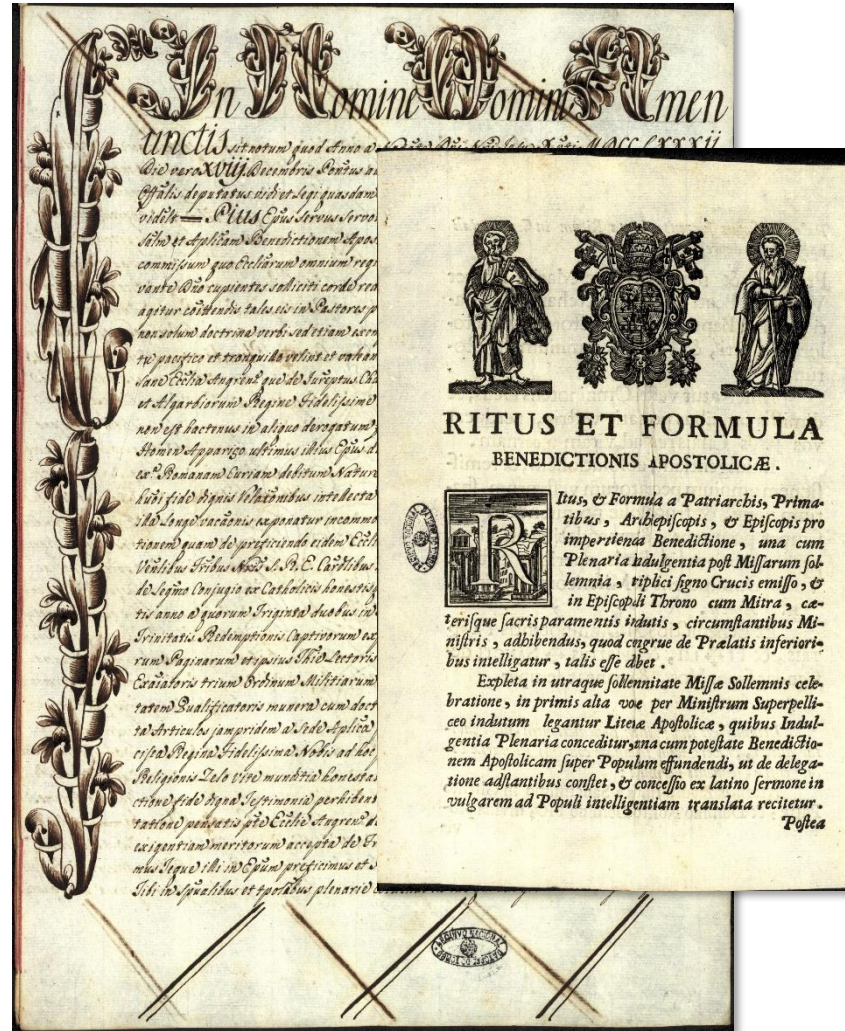 In Nomine Domini Amen
Cunctis sit notum quod Anno a
Die vero XVIIJ Decembris Pontus
Offalis deputatus vidi et legi quasdam
videlt — Pius Epus Servus Servo
Salm et Aplicam Benedictionem Apos
commissum quo Eccliarum omnium regi
cupientes solliciti corde red
agitur coittendis tales eis in Pastores p
non solum doctrina verbi sed etiam exem
pacifico et tranquillo velint et valean
Sane Ecclia Angren que de Jureptus
et Algarbiorum Regine Fidelissime
non est hactenus in aliquo derogatum
Homen Apparigo ultimus illius Epus d
ex Romanam Curiam debitum Nature
fide dignis relationibus intellecta
illa longe vacaonis exponatur incommo
tionem quam de preficiendo eidem Eccl
Fribus S. R. E. Cardlibus
de Legmo Conjugio ex Catholicis honestis
tis anno a quorum Triginta duobus in
Trinitatis Redemptionis Captivorum ex
rum Paginarum et ipsius Lectoris
trium Ordinum Militiarum
tatem Qualificatoris munera cum doct
ta Articulos jampridem a Sede Aplica
cisca Regina Fidelissima Nobis ad hoc
Religionis Zelo vite munditia honestas
ctione fide digna Testimonia perhiben
tatione pensatis Ecclie Angren d
exigentiam meritorum accepta de
mus Teque illi in Epum preficimus et
Tibi in spualibus et tpolibus plenarie
RITUS ET FORMULA
BENEDICTIONIS APOSTOLICÆ.
Ritus, & Formula a Patriarchis, Prima-
tibus, Archiepiscopis, & Episcopis pro
impertienda Benedictione, una cum
Plenaria Indulgentia post Missarum sol-
lemnia, triplici signo Crucis emisso, &
in Episcopali Throno cum Mitra, cæ-
terisque sacris paramentis indutis, circumstantibus Mi-
nistris, adhibendus, quod cngrue de Prælatis inferiori-
bus intelligatur, talis esse dbet.
Expleta in utraque sollennitate Missæ Sollemnis cele-
bratione, in primis alta voe per Ministrum Superpelli-
ceo indutum legantur Literæ Apostolicæ, quibus Indul-
gentia Plenaria conceditur, una cum potestate Benedictio-
nem Apostolicam super Populum effundendi, ut de delega-
tione adstantibus constet, & concessio ex latino sermone in
vulgarem ad Populi intelligentiam translata recitetur.
Postea